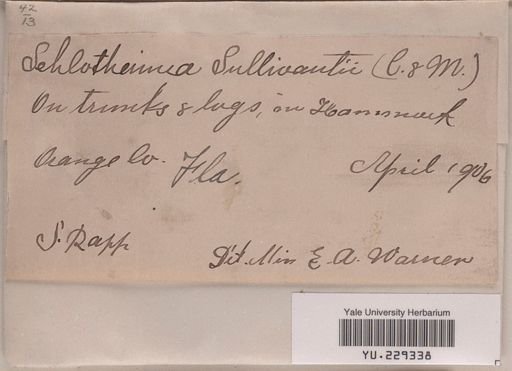 42
13
Schlotheimia Sullivantii (C. & M.)
On trunks & logs, in Hammock
Orange Co. Fla. April 1906
S. Rapp Dét. Miss E. A. Warner
Yale University Herbarium
YU.229338